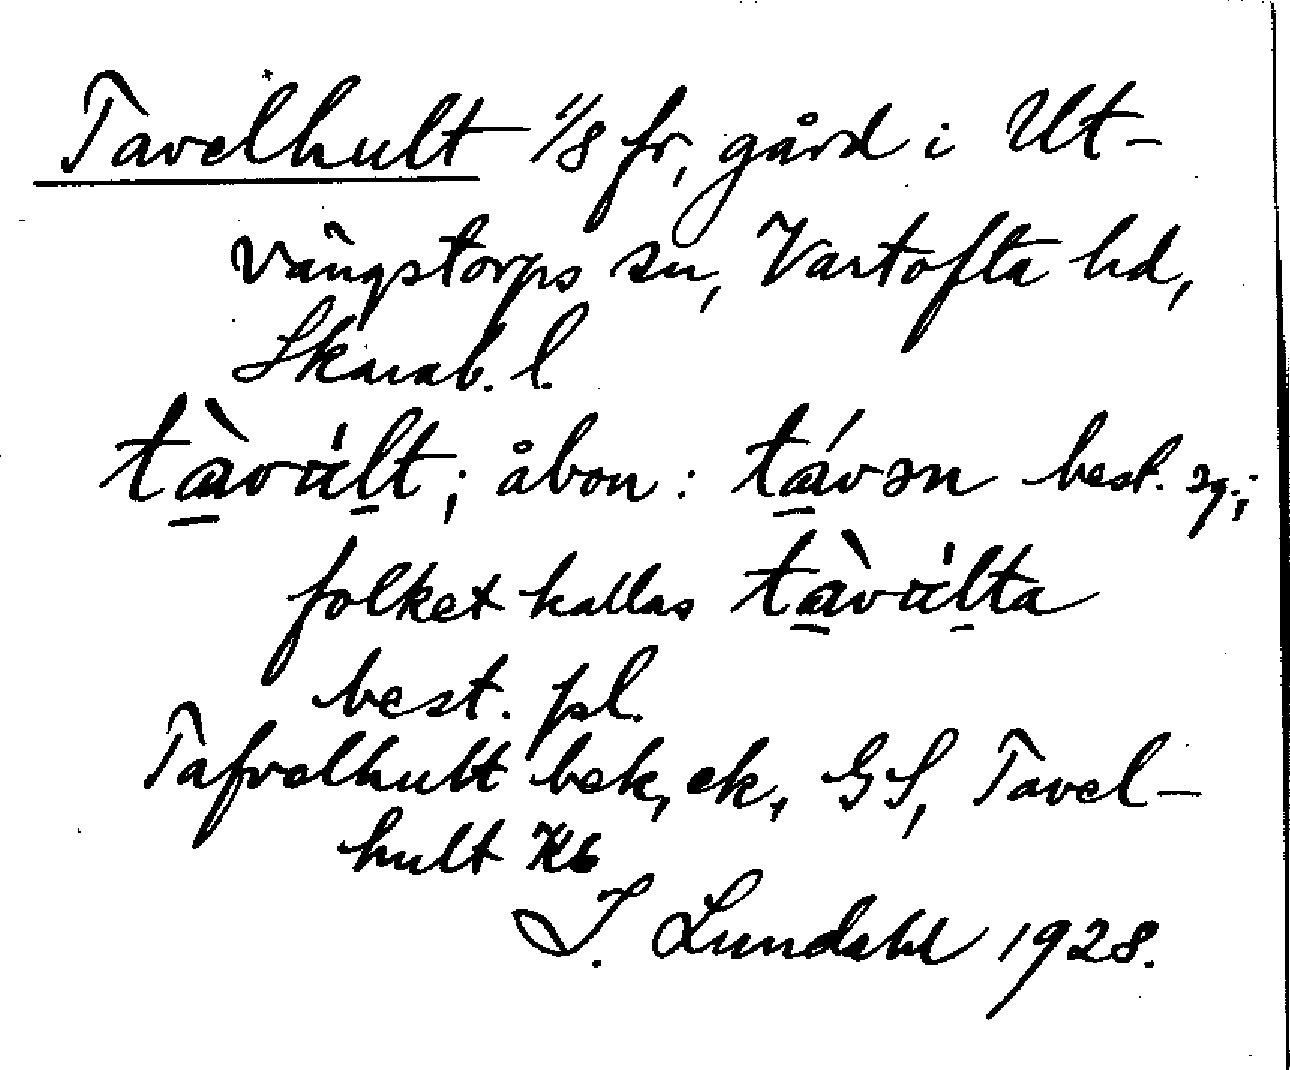 Tavelhult 1/8 fr, gård i Ut-
vängstorps sn, Vartofta hd,
Skarab. l.
tà̱vu̇lt; åbon: tá̱vən best. sg.;
folket kallas tà̱vu̇lta
best. pl.
Tafvelhult bek, ek, GS, Tavel-
hult Kb
I. Lundahl 1928.